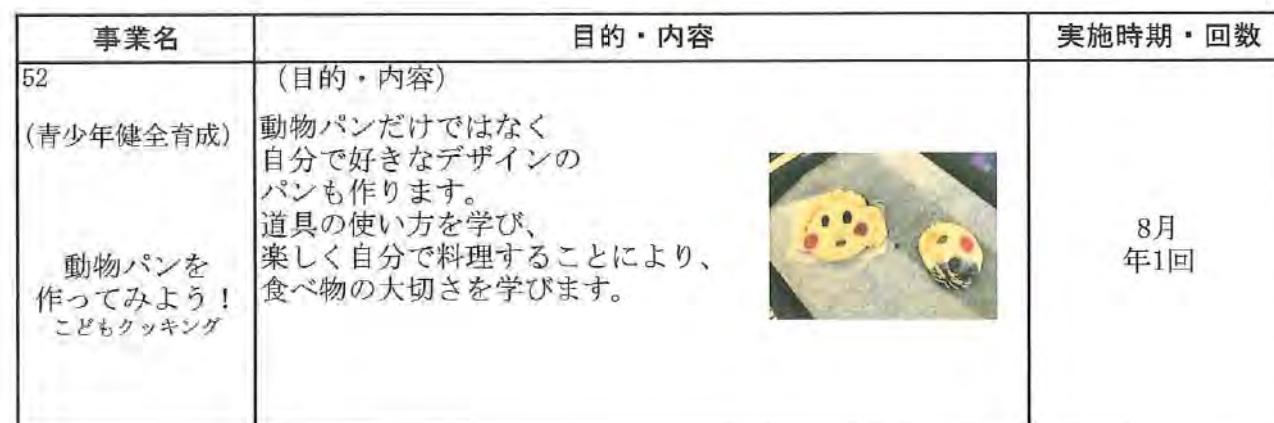 事業名
目的・内容
実施時期・回数
52
(青少年健全育成)
動物パンを
作ってみよう!
こどもクッキング
(目的・内容)
動物パンだけではなく
自分で好きなデザインの
パンも作ります。
道具の使い方を学び、
楽しく自分で料理することにより、
食べ物の大切さを学びます。
8月
年1回